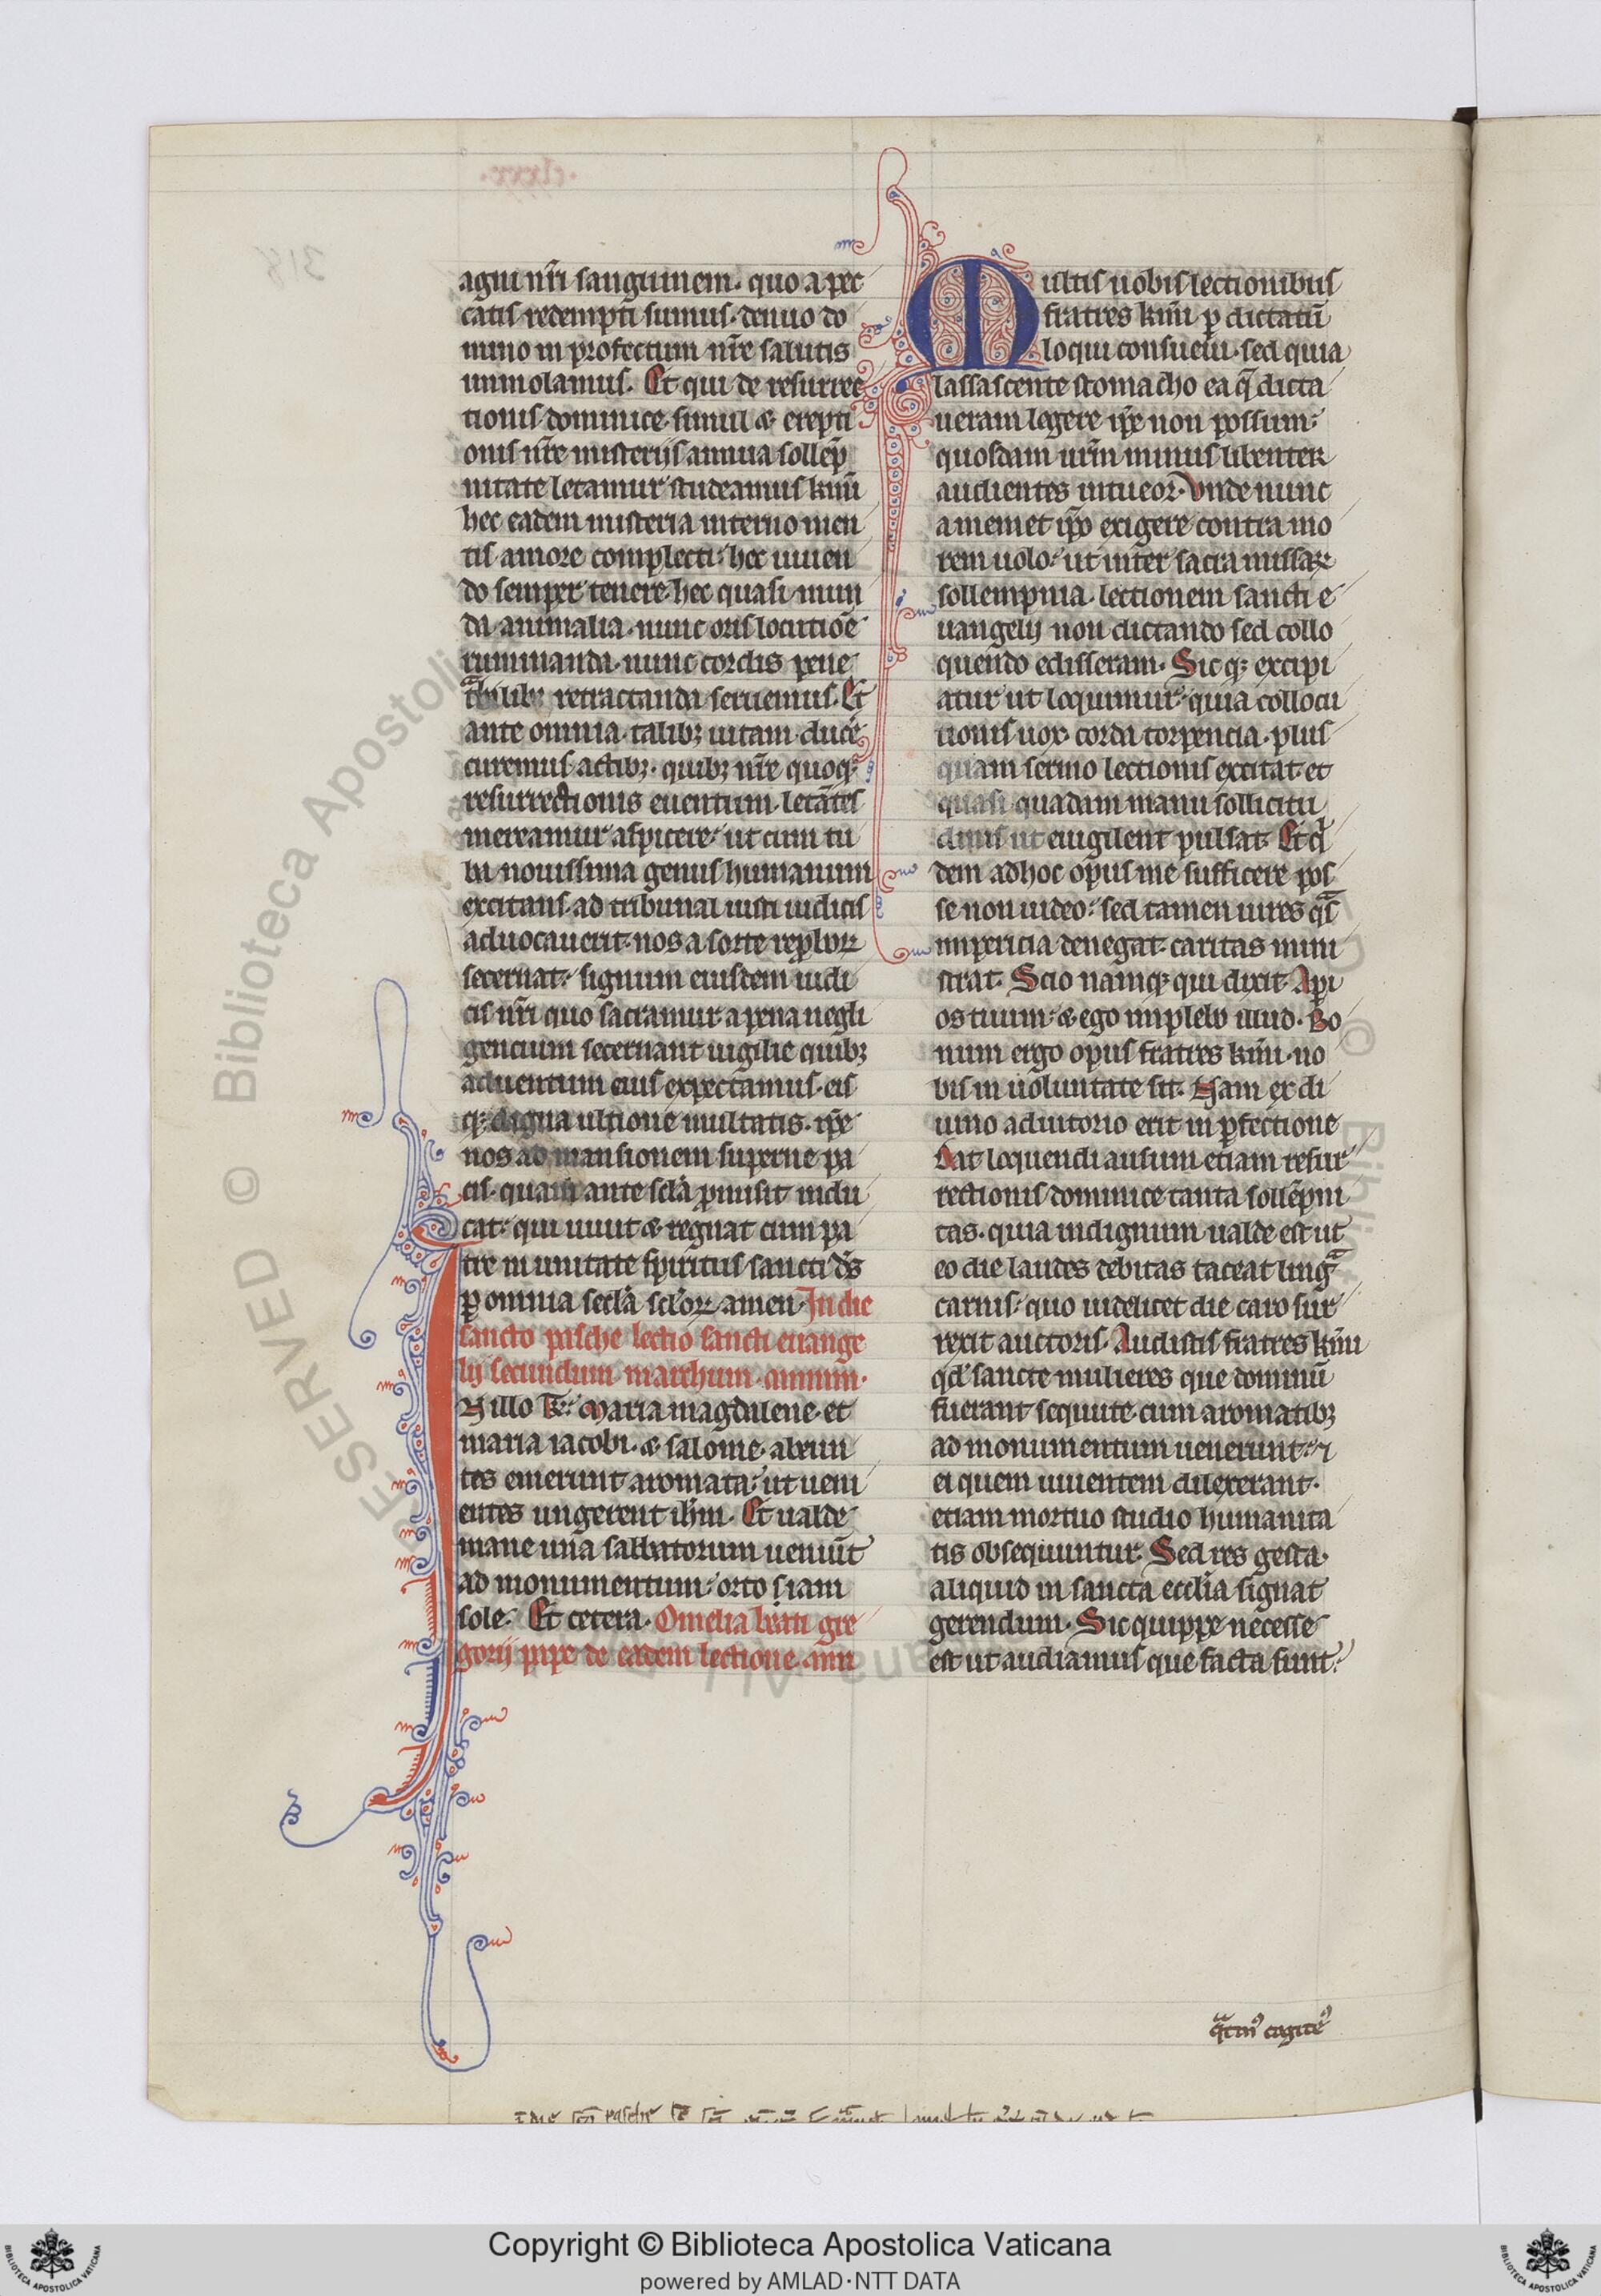 agni nr̄i sanguinem. quo a pec
catis redempti sumus. denuo do
mino in profectum nr̄e salutis
immolamus. Et qui de resurrec
tionis dominice. simul & erepti
onis nr̄e misterijs annua sollep̄
nitate letamur studeamus kmī
hec eadem misteria interno men
tis amore complecti. hec uiuen
do semper tenere. hec quasi mun
da animalia. nunc oris locutiōe
ruminanda. nunc cordis pene
retractanda seruemus. Et
ante omnia. talibꝫ uitam ducē
curemus actibꝫ. quibꝫ nr̄e quoqꝫ
resurrectionis euentum. letātes
mereamur aspicere. ut cum tu
ba nouissima genus humanum
excitans. ad tribunal iusti iudicis
aduocauerit. nos a sorte reproboꝝ
secernat. signum eiusdem iudi
cis nr̄i quo sacramur. a pena negli
gencium secernant uigilie quibꝫ
aduentum eius expectamus. eis
qꝫ digna ultione multatis. ip̄e
nos ad mansionem superne pa
cis. quam ante sclā ꝓmisit indu
cat. qui uiuit & regnat cum pa
tre in unitate spiritus sancti ds̄
ꝑ omnia seclā sclōꝝ amen. In die
sancto pasche lectio sancti euange
lij secundum marchum.
N illo t̄r. Maria magdalene. et
maria iacobi. & salome. abeun
tes emerunt aromata. ut ueni
entes ungerent ih̄m. Et ualde
mane una sabbatorum ueniūt
ad monumentum. orto iam
sole. Et cetera. Omelia beati gre
gorij pape de eadem lectione.
Multis uobis lectionibus
fratres kmī ꝑ dictatū
loqui consueui. sed quia
lassascente stomacho ea q̄ dicta
ueram legere ip̄e non possum.
quosdam ur̄m minus libenter
audientes intueor. Vnde nunc
a memet ip̄o exigere contra mo
rem uolo. ut inter sacra missaꝝ
sollempnia. lectionem sancti e
uangelij non dictando sed collo
quendo edisseram. Sicqꝫ excipi
atur ut loquimur. quia collocu
tionis uox corda torpencia. plus
quam sermo lectionis excitat. et
quasi quadam manu sollicitu
dinis ut euigilent pulsat. Et qi
dem adhoc opus me sufficere pos
se non uideo. sed tamen uires qas
impericia denegat. caritas mini
strat. Scio namqꝫ qui dixit. Aperi
os tuum. & ego implebo illud. Bo
num ergo opus fratres kmī. no
bis in uoluntate sit. Nam ex di
uino adiutorio erit in ꝑfectione
Dat loquendi ausum etiam resur
rectionis dominice tanta sollēpni
tas. quia indignum ualde est ut
eo die laudes debitas taceat lingᵃ
carnis. quo uidelicet die caro sur
rexit auctoris. Audistis fratres kmī
qd̄ sancte mulieres que dominū
fuerant sequute. cum aromatibꝫ
ad monumentum uenerunt. ⁊
ei quem uiuentem dilexerant.
etiam mortuo studio humanita
tis obsequuntur. Sed res gesta.
aliquid in sancta eccl̄ia signat
gerendum. Sic quippe necesse
est ut audiamus que facta sunt.
cogitem⁹
Copyright © Biblioteca Apostolica Vaticana
powered by AMLAD·NTT DATA